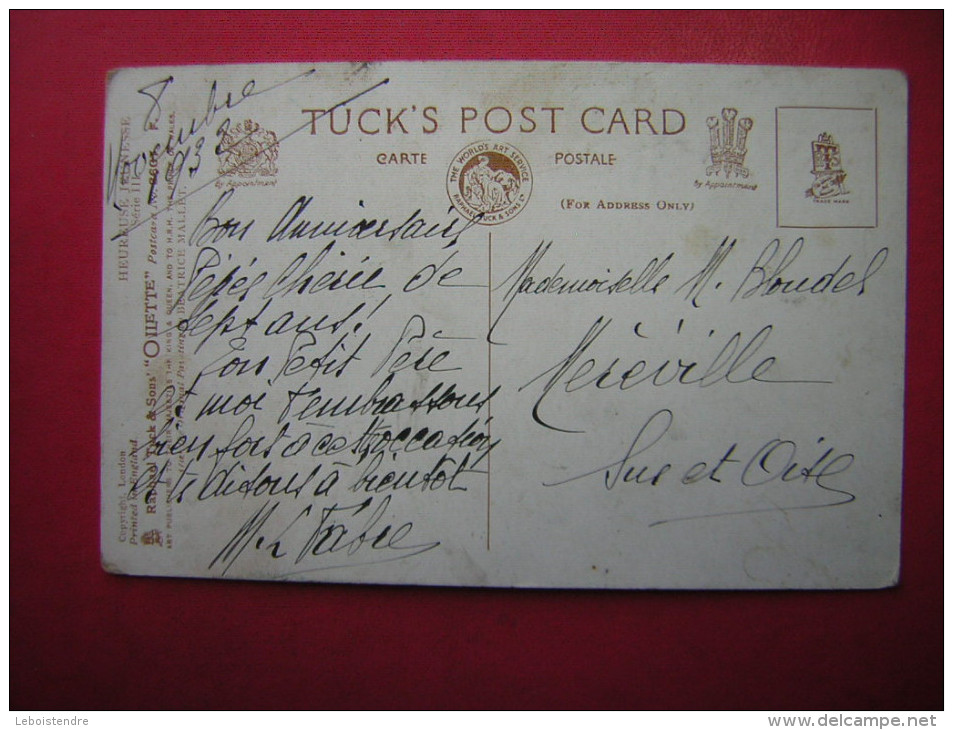 8 Novembre
TUCK'S POST CARD
CARTE POSTALE
(FOR ADDRESS ONLY)
by Appointment
by Appointment
THE WORLD'S ART SERVICE
RAPHAEL TUCK & SONS LD
TRADE MARK
HEUREUSE JEUNESSE
Série III
Raphael Tuck & Sons' "OILETTE" Postcard
BEATRICE MALLET
Copyright, London
Printed in England
Bon Anniversaire
chérie de
Sept ans!
Ton Petit Père
et moi t'embrassons
bien fort à cette occation
et te disons à bientôt
M. L Fabre
Mademoiselle M. Blondel
Meréville
Sne et Oise
Leboistendre
www.delcampe.net